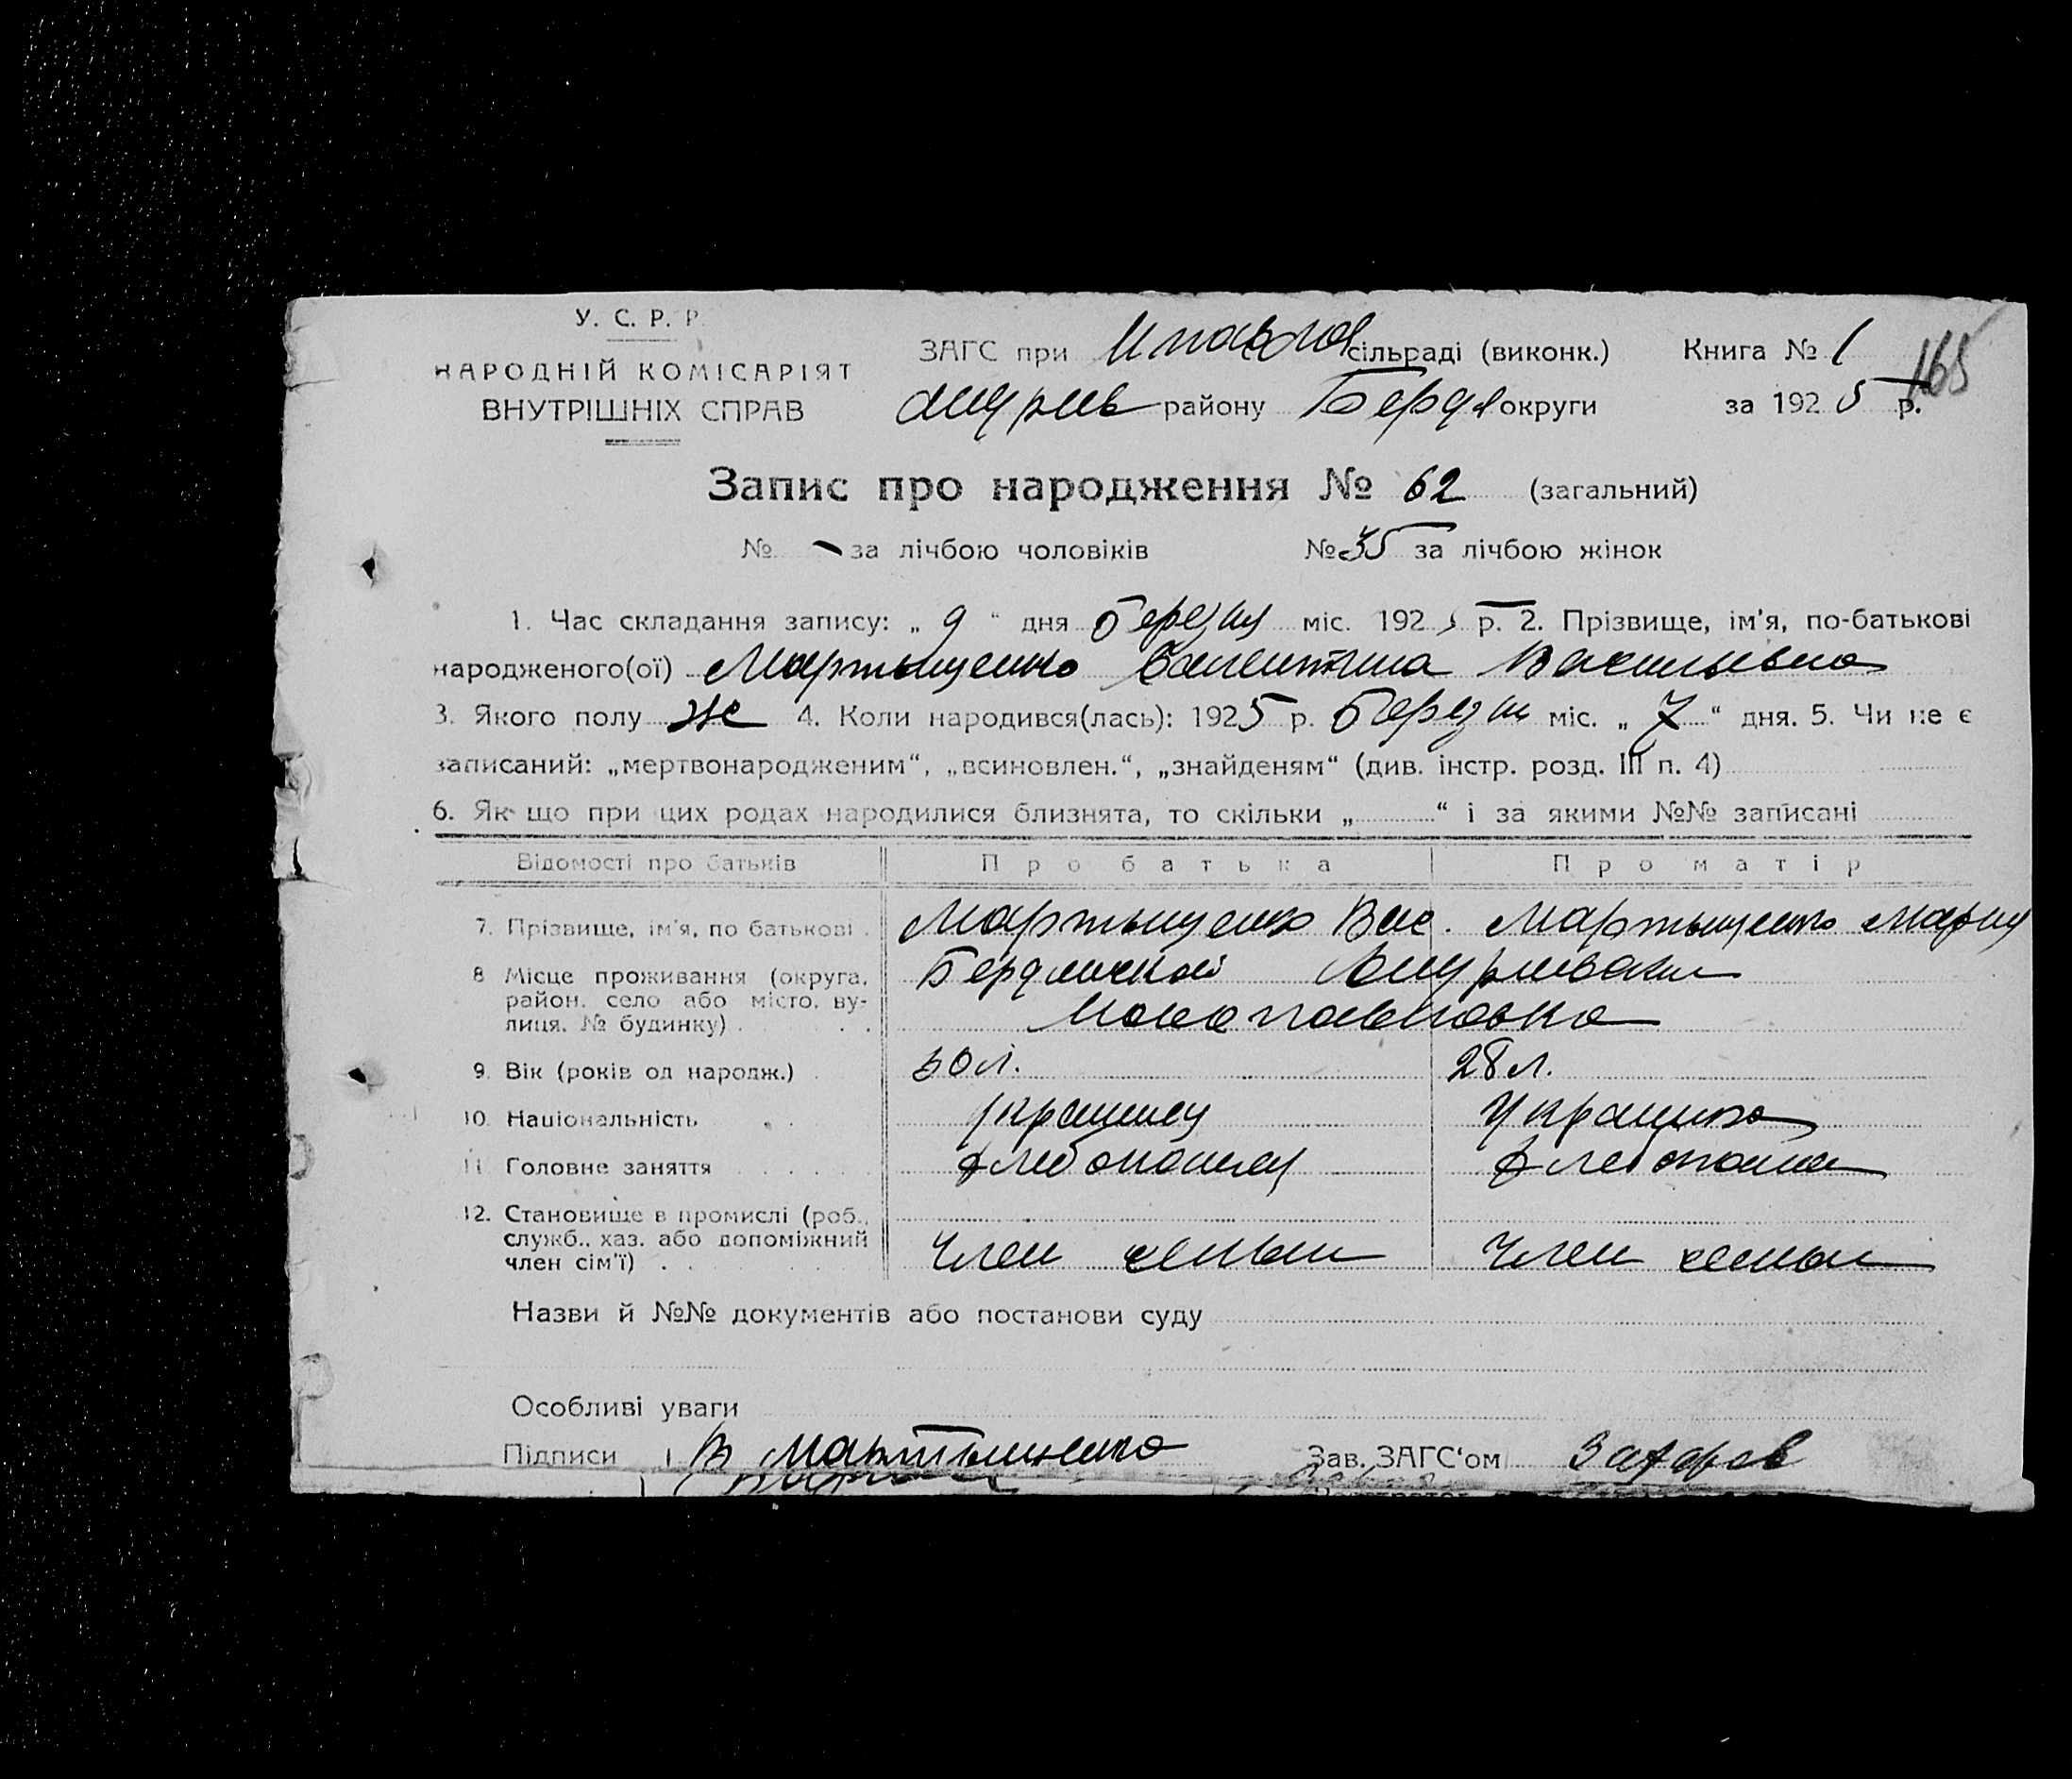 У. С. Р. Р.
НАРОДНІЙ КОМІСАРІЯТ
ВНУТРІШНІХ СПРАВ
ЗАГС при сільраді (виконк.) Книга № 1
165
району Бердя округи за 1925 р.
Запис про народження № 62 (загальний)
№ - за лічбою чоловіків №35 за лічбою жінок
1. Час складання запису: „ 9 “ дня березня міс. 1925 р. 2. Прізвище, ім'я, по-батькові
народженого(ої) Мартыщенко Валентина Васильевна
3. Якого полу ж 4. Коли народився(лась): 1925 р. Березня міс. „ 7 “ дня. 5. Чи не є
записаний: „мертвонародженим“, „всиновлен.“, „знайденям“ (див. інстр. розд. III п. 4)
6. Як що при цих родах народилися близнята, то скільки „ “ і за якими №№ записані
Відомості про батьків Про батька Про матір
7. Прізвище, ім'я, по батькові . Мартыщенко Вас. Мартыщенко Мария
8 Місце проживання (округа,
район, село або місто, ву-
лиця, № будинку) . . . Новопавловка
9. Вік (років од народж.) . 30 л. 28 л.
10. Національність . . украинец Украинка
11. Головне заняття . . . . хлебопашец хлебопашец
12. Становище в промислі (роб.,
служб., хаз. або допоміжний
член сім'ї) . . Член семьи Член семьи
Назви й №№ документів або постанови суду
Особливі уваги
Підписи В Мартыщенко Зав. ЗАГС'ом Захаров